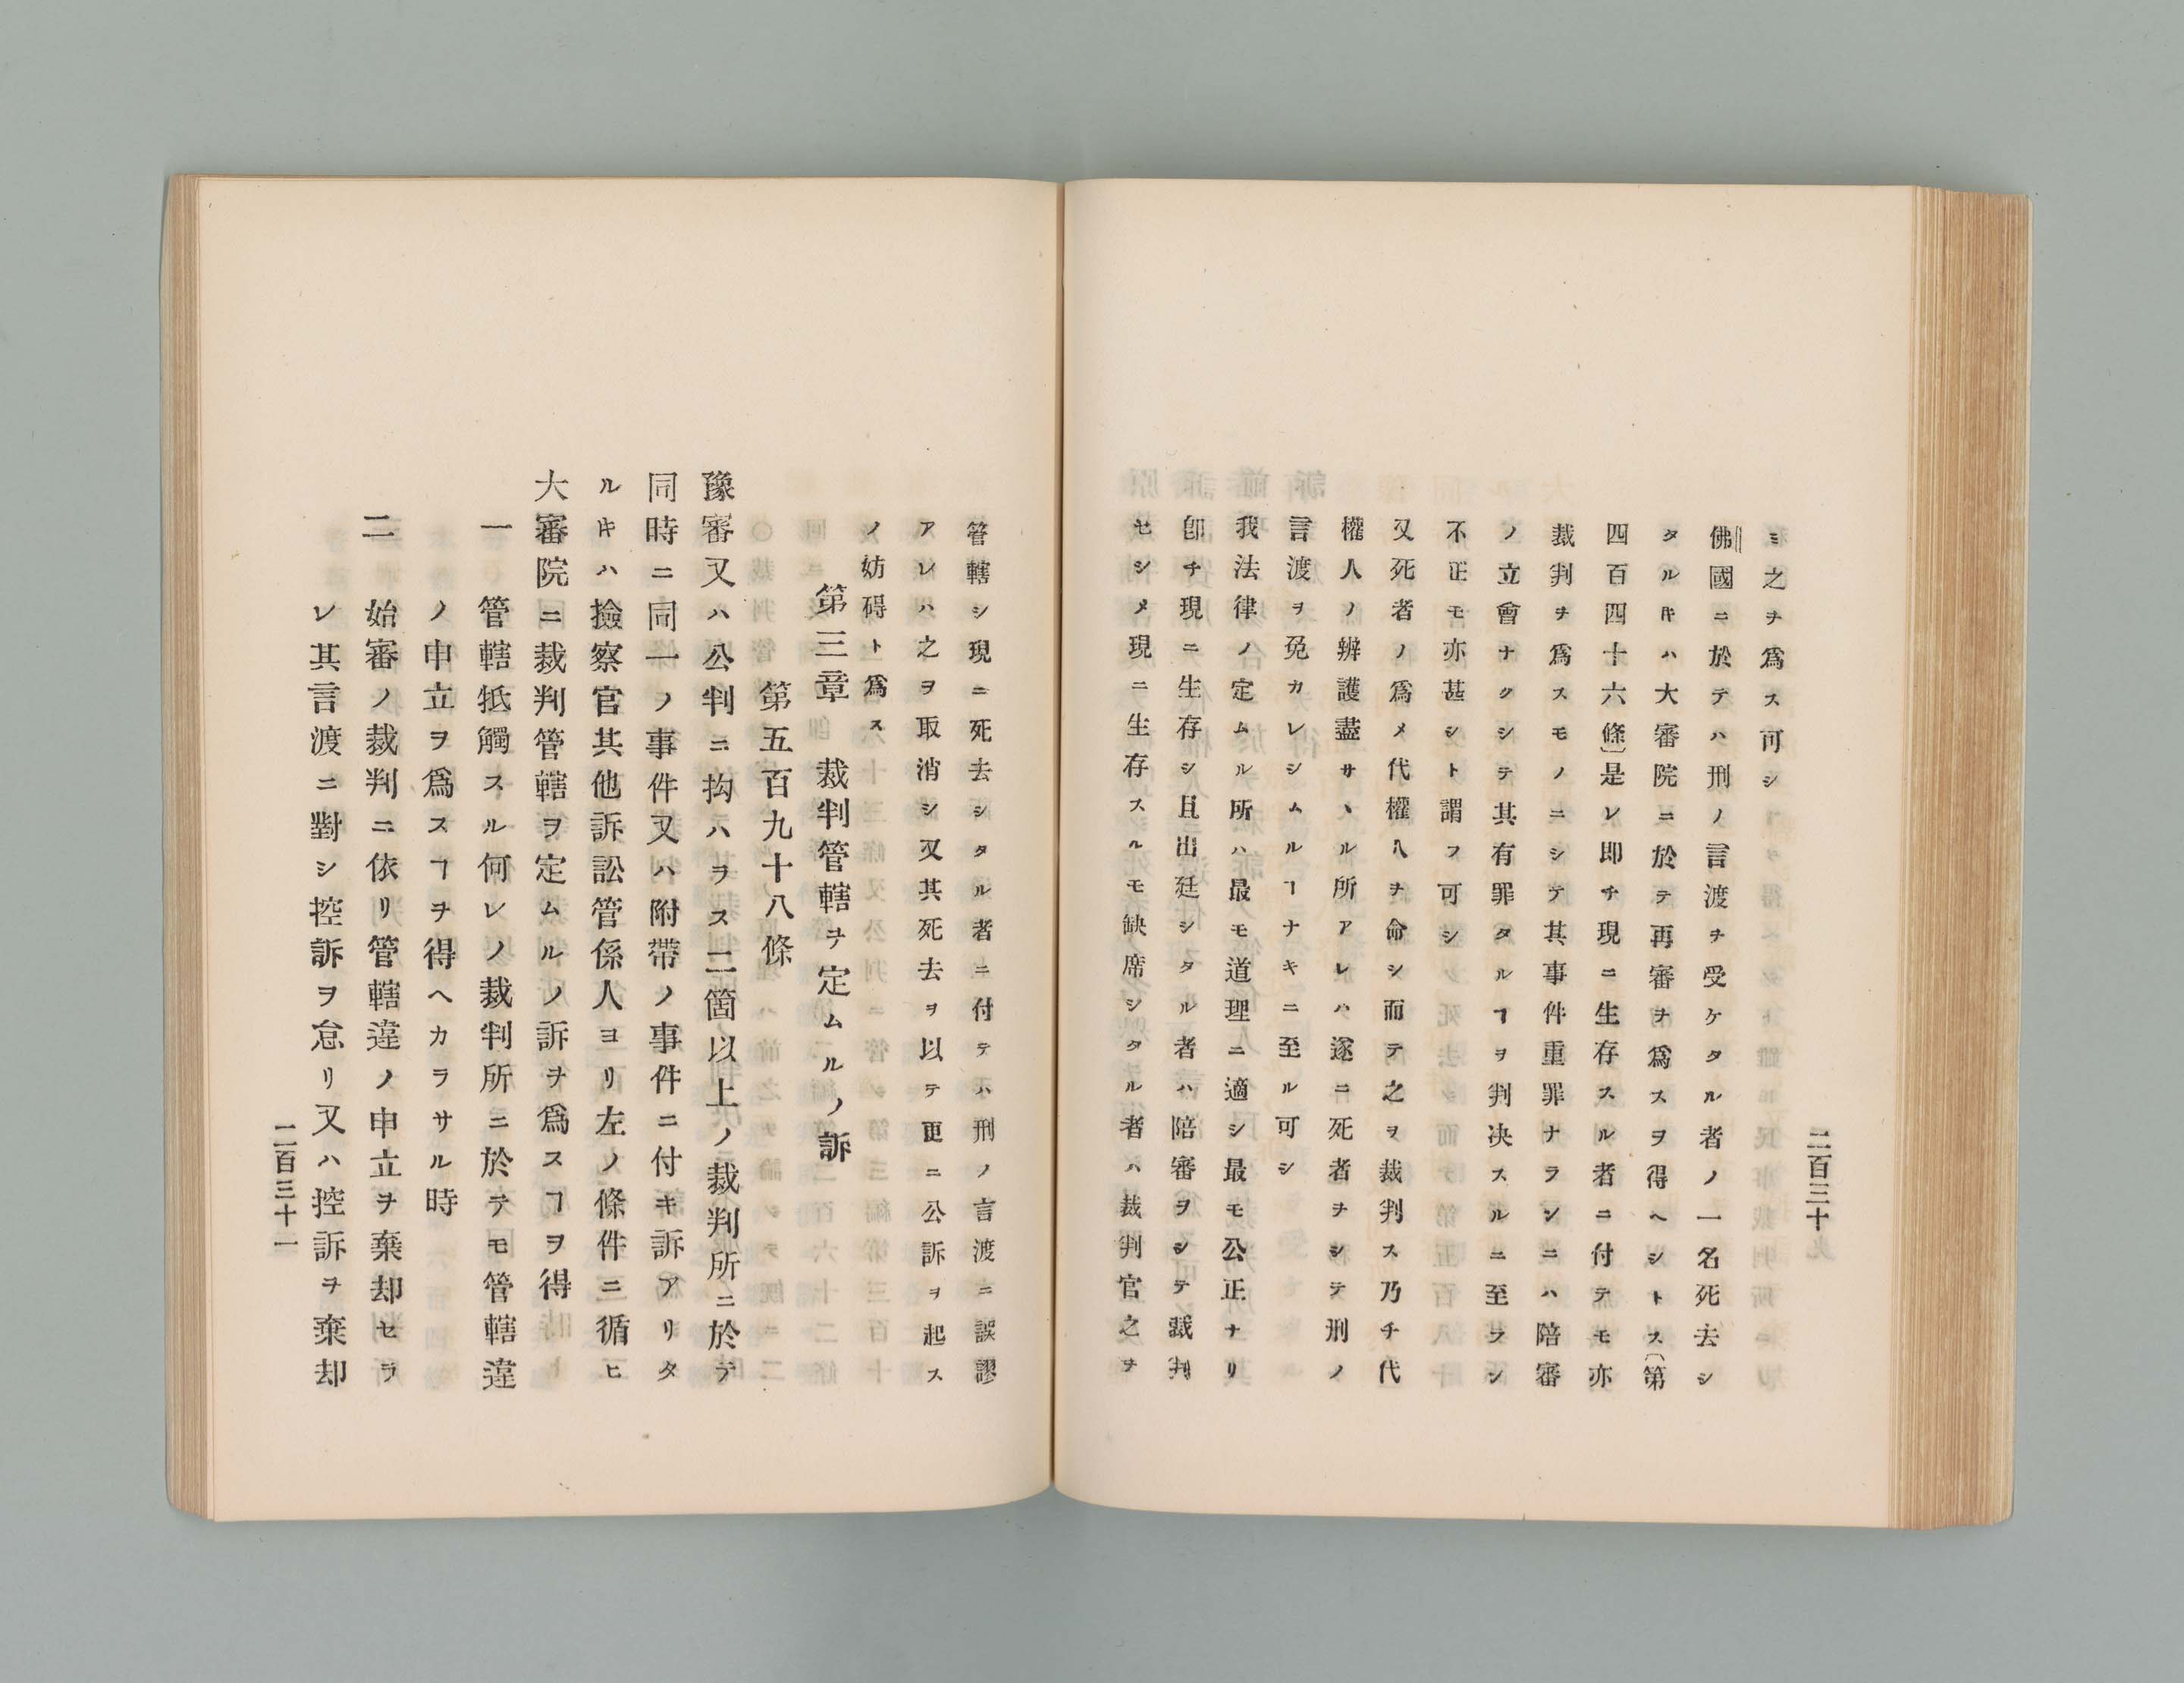 二百三十
ミ之ヲ爲ス可シ
佛國ニ於テハ刑ノ言渡ヲ受ケタル者ノ一名死去シ
タルキハ大審院ニ於テ再審ヲ爲スヲ得ヘシトス(第
四百四十六條)是レ即チ現ニ生存スル者ニ付テモ亦
裁判ヲ爲スモノニシテ其事件重罪ナランニハ陪審
ノ立會ナクシテ其有罪タルヿヲ判决スルニ至ラン
不正モ亦甚シト謂フ可シ
又死者ノ爲メ代權人ヲ命シ而テ之ヲ裁判ス乃チ代
權人ノ辨護盡サヽル所アレハ遂ニ死者ヲシテ刑ノ
言渡ヲ免カレシムルヿナキニ至ル可シ
我法律ノ定ムル所ハ最モ道理ニ適シ最モ公正ナリ
卽チ現ニ生存シ且出廷シタル者ハ陪審ヲシテ裁判
セシメ現ニ生存スルモ缺席シタル者ハ裁判官之ヲ
管轄シ現ニ死去シタル者ニ付テハ刑ノ言渡ニ誤謬
アレハ之ヲ取消シ又其死去ヲ以テ更ニ公訴ヲ起ス
ノ妨碍ト爲ス
第三章 裁判管轄ヲ定ムルノ訴
第五百九十八條
豫審又ハ公判ニ拘ハラス二箇以上ノ裁判所ニ於テ
同時ニ同一ノ事件又ハ附帶ノ事件ニ付キ訴アリタ
ルキハ撿察官其他訴訟管係人ヨリ左ノ條件ニ循ヒ
大審院ニ裁判管轄ヲ定ムルノ訴ヲ爲スヿヲ得
一 管轄牴觸スル何レノ裁判所ニ於テモ管轄違
ノ申立ヲ爲スヿヲ得ヘカラサル時
二 始審ノ裁判ニ依リ管轄違ノ申立ヲ棄却セラ
レ其言渡ニ對シ控訴ヲ怠リ又ハ控訴ヲ棄却
二百三十一